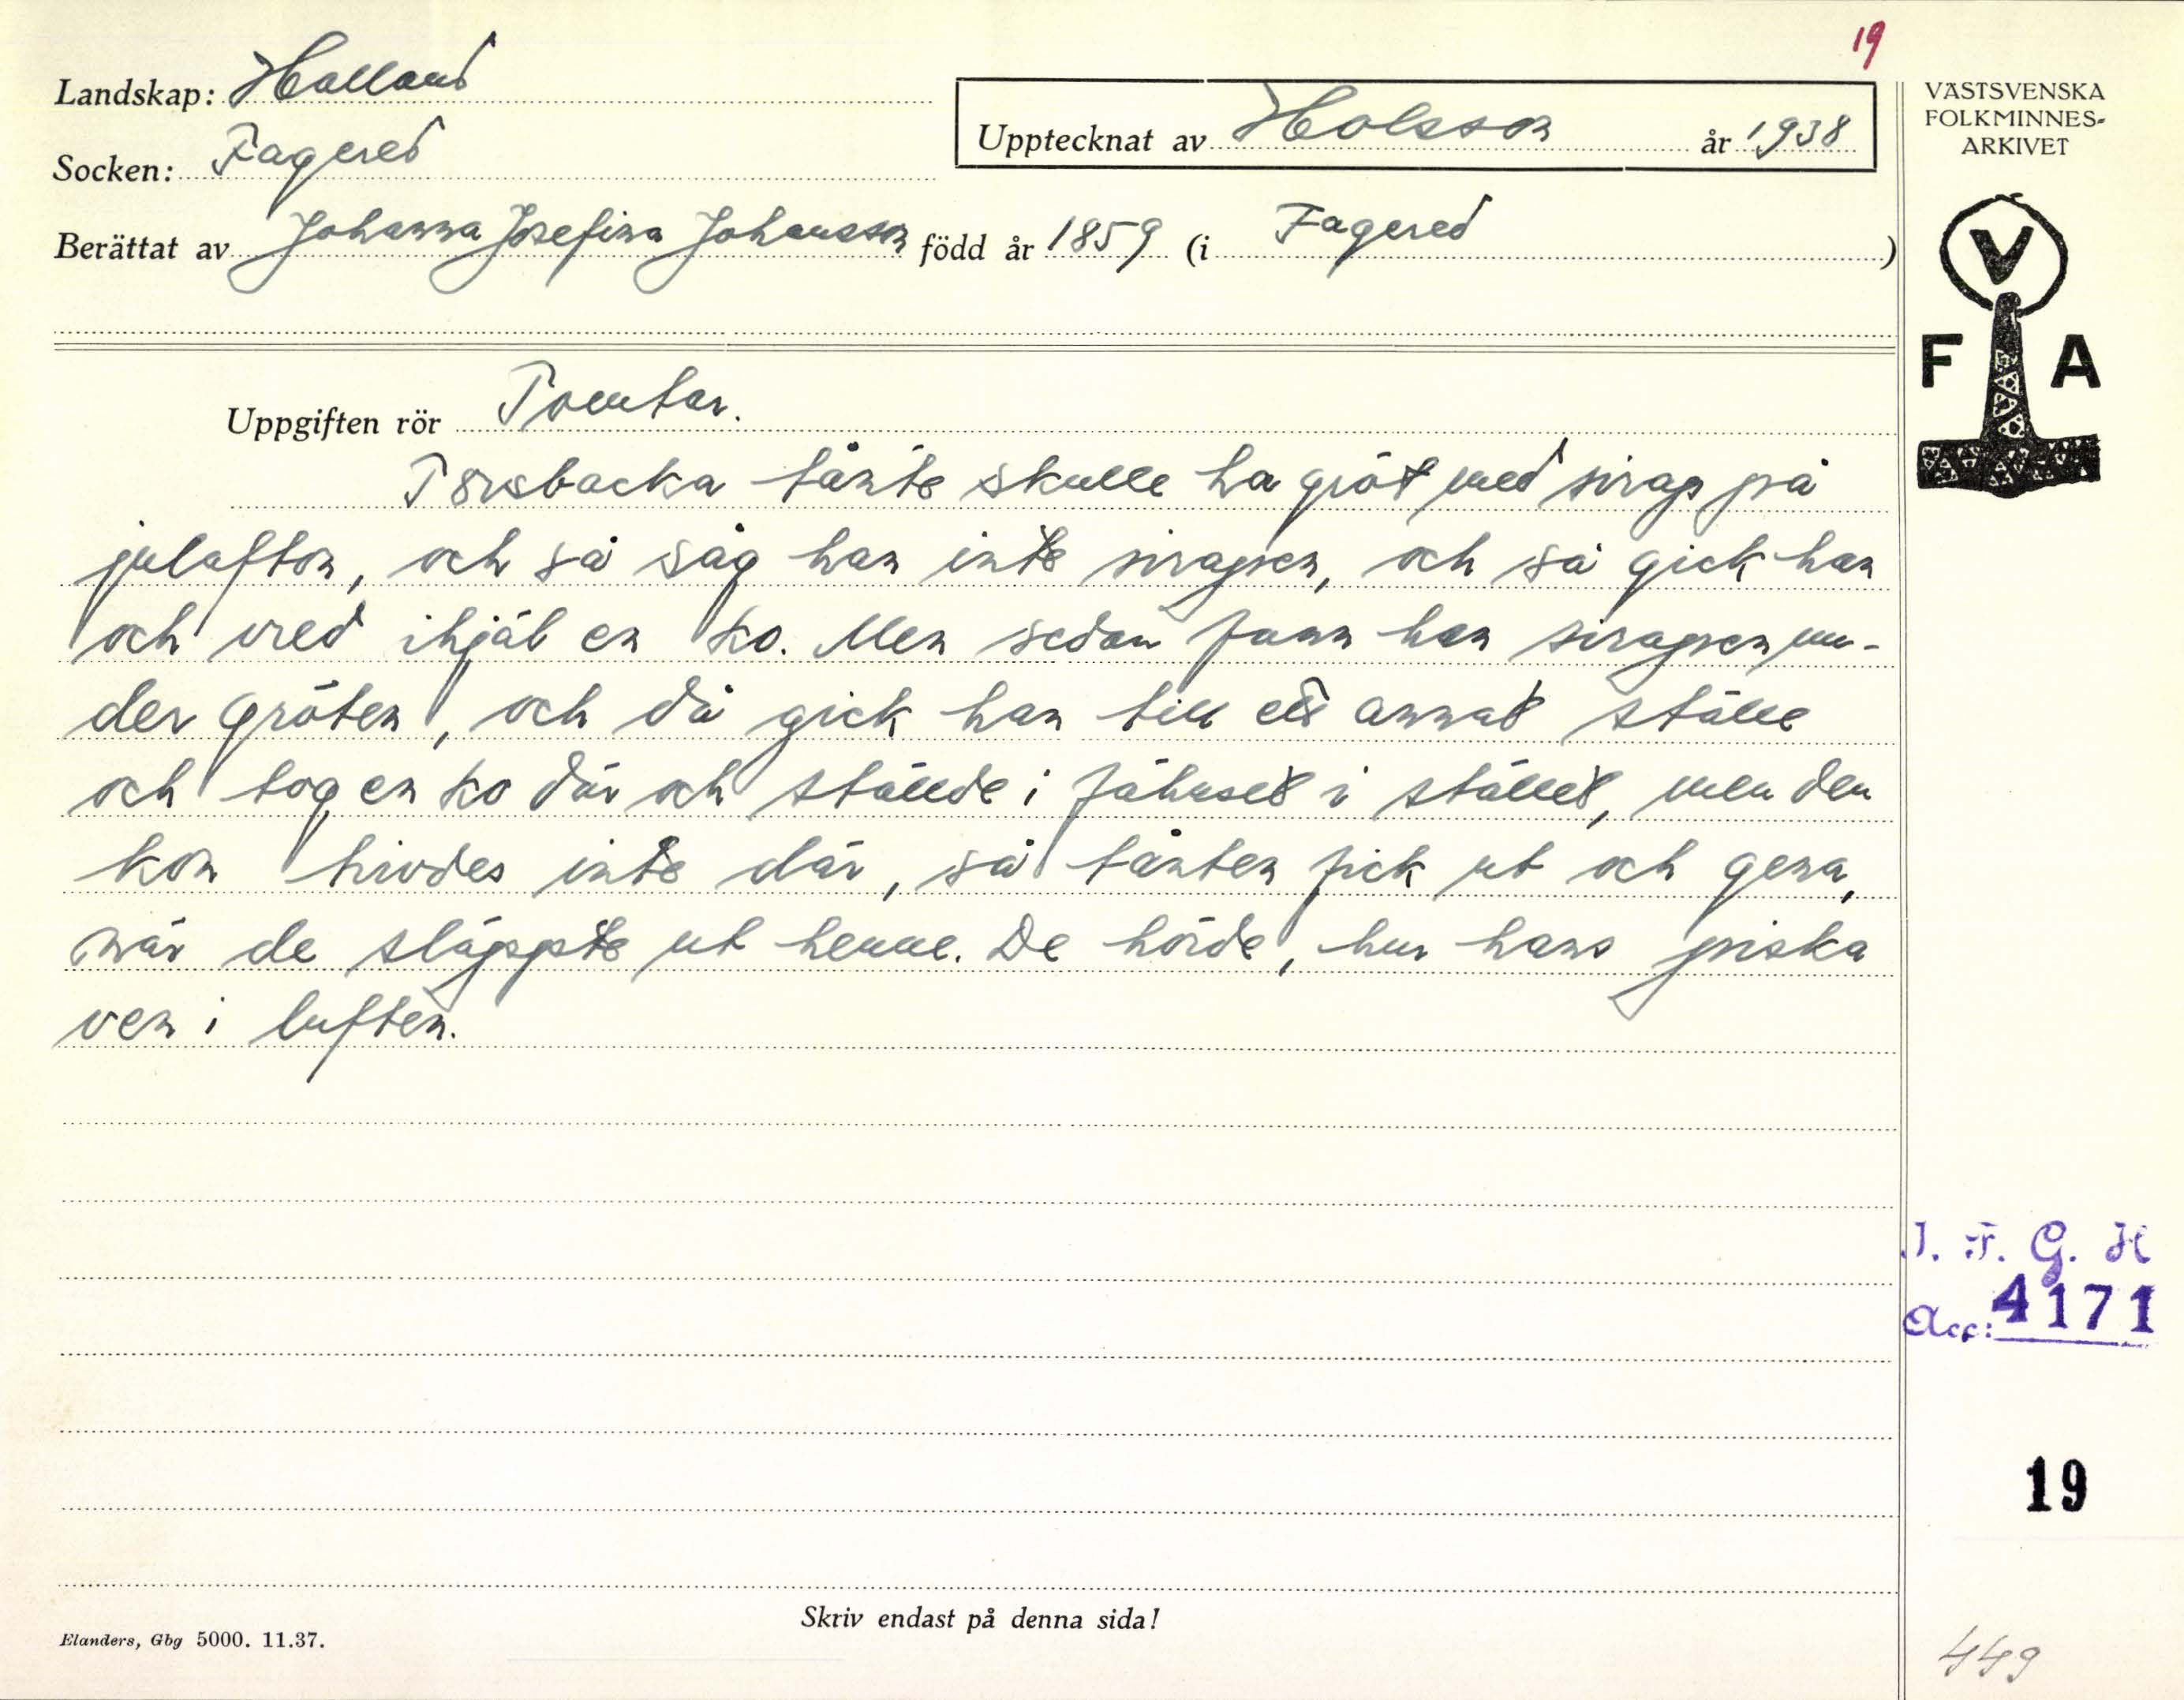 19
Landskap: Halland
Socken: Fagered
Upptecknat av Holsson år 1938
Berättat av Johanna Josefina Johansson född år 1859 (i Fagered)
VÄSTSVENSKA
FOLKMINNES-
ARKIVET
V
F A
Uppgiften rör Tomtar.
Törsbacka tånte skulle ha gröt med sirap på
julafton, och så såg han inte sirapen, och så gick han
och vred ihjäl en ko. Men sedan fann han sirapen un-
der gröten, och då gick han till ett annat ställe
och tog en ko där och ställde i fähuset i stället, men den
kon trivdes inte där, så tånten fick ut och gena,
när de släppte ut henne. De hörde, hur hans piska
ven i luften.
I. F. G. H
Acc: 4171
19
Skriv endast på denna sida!
Elanders, Gbg 5000. 11.37.
449